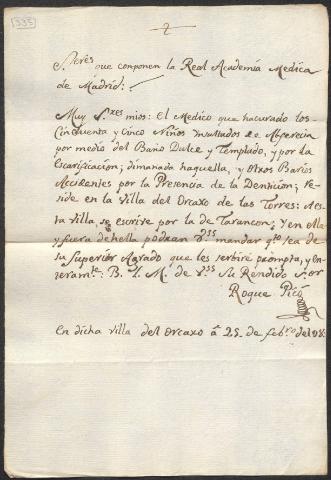 335
S.res que conponen la Real Academia Medica
de Madrid:
Muy S.res mios: El Medico que hacurado los
Cinquenta y Cinco Niños Insultados de Alferecia
por medio del Baño Dulce y Templado, y por la
Escarificacion; dimanada haquella, y Otros Barios
Accidentes por la Presencia de la Denticion; re-
side en la Villa del Orcaxo de las Torres: A es-
ta Villa, se escrive por la de Tarancon; Y en ella
y fuera de hella podran V.ss mandar q.to sea de
su Superior Agrado que les serbire prompta, y en-
teram.te: B. L. M. de V.ss Su Rendido S.or
Roque Picó
En dicha Villa del Orcaxo â 25 de feb.ro del 98: